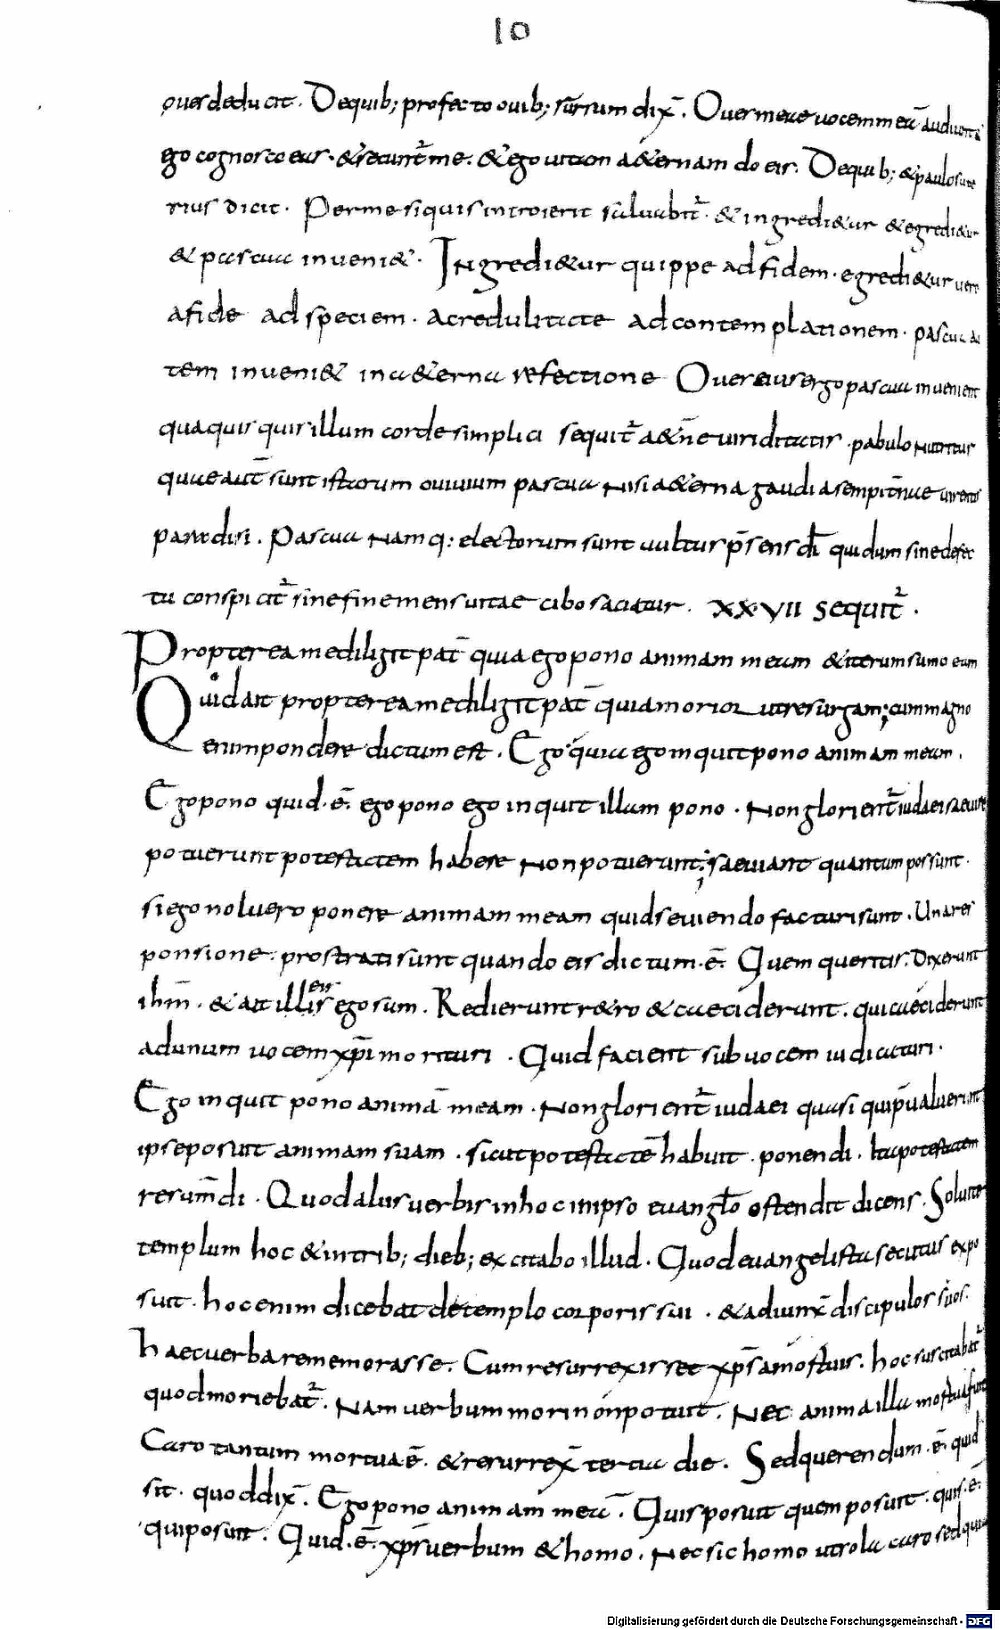 10
oues deducit. De quib; profecto ouib; sursum dix̄. Oues meae uocem meā audiunt &
ego cognosco eas. & secunt̄ me. & ego uitam a&ernam do eis. De quib; & paulo supe
rius dicit. Per me si quis introierit saluabit̄. & ingredi&ur & egredi&ur
& pascua inueni&. Ingredi&ur quippe ad fidem. egredi&ur uero
a fide ad speciem. a credulitate ad contemplationem. pascua au
tem inueni& in a&erna refectione Oues eius ergo pascua inuenient
quia quisquis illum corde simplici sequit̄ a&n̄e uiriditatis pabulo nutritur
quae aut̄ sunt istarum ouium pascua nisi a&erna gaudia sempit̄nae uirentis
paradisi. Pascua namq: electorum sunt uultus p̄sens dī qui dum sine defec
tu conspicit̄ sine fine mens uitae cibo saciatur. XXVII Sequit̄.
Propterea me diligit pat̄ quia ego pono animam meam & iterum sumo eam
Quid ait propterea me diligit pat̄ quia morior ut resurgam; cum magno
enim pondere dictum est. Ego quia ego inquit pono animam meam.
Ego pono quid .ē. ego pono ego inquit illam pono. Non glorient̄ iudaei saeuire
potuerunt potestatem habere non potuerunt; saeuiant quantum possunt.
si ego noluero ponere animam meam quid seuiendo facturi sunt. Una res
ponsione. prostrati sunt quando eis dictum .ē. Quem queritis. Dixerunt
ihm̄. & ait illis eis ego sum. Redierunt r&ro & caeciderunt. qui caeciderunt
ad unum uocem xp̄i morituri. Quid facient sub uocem iudicaturi.
Ego inquit pono animā meam. Non glorient̄ iudaei quasi quip̄ualuerint
ipse posuit animam suam. sicut potestatē habuit. ponendi. Ita potestatem
resum̄di. Quod alus uerbis in hoc in ipso euangl̄o ostendit dicens. Soluite
templum hoc & in trib; dieb; excitabo illud. Quod euangelista secutus expo
suit. hoc enim dicebat de templo corporis sui. & adiunx̄ discipulos suos.
haec uerba rememorasse. Cum resurrexisset xp̄s a mortuis. hoc suscitabat̄
quod moriebat̄. Nam uerbum mori non potuit. Nec anima illa mortua fuit
Caro tantum mortua ē. & resurrex̄ tertia die. Sed querendum .ē. quid
sit. quod dix̄. Ego pono animam meā. Quis posuit quem posuit. quis .ē.
qui posuit. Quid .ē. xp̄s uerbum & homo. Nec sic homo ut sola caro sed quia
Digitalisierung gefördert durch die Deutsche Forschungsgemeinschaft - DFG